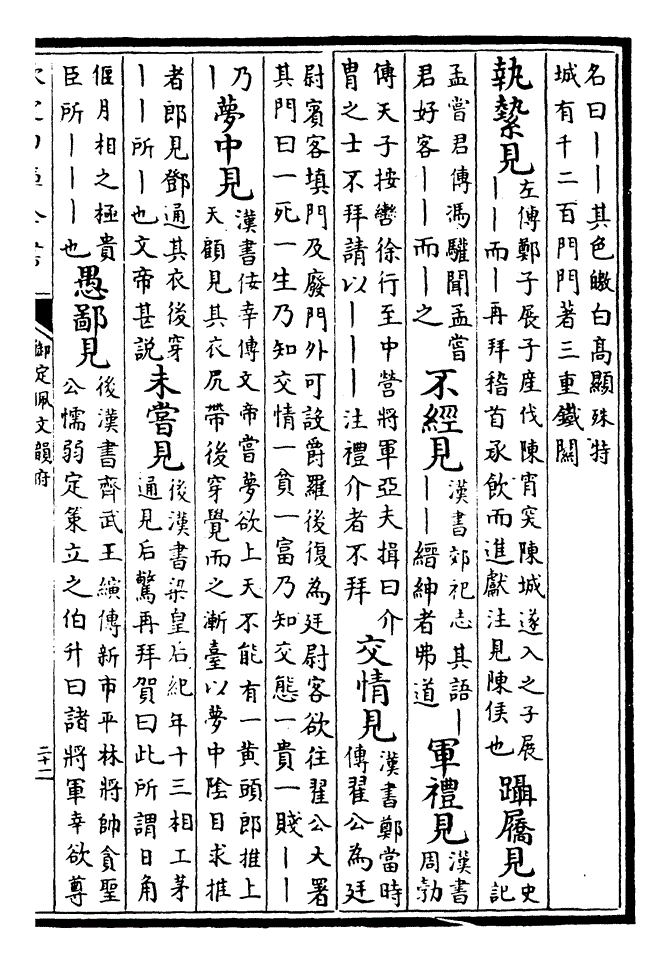 名曰丨丨其色皦白高顯殊特
城有千二百門門著三重鐵關
執縶見左傳鄭子展子產伐陳宵突陳城遂入之子展
丨丨而丨再拜稽首承飲而進獻注見陳侯也
躡屩見史記
孟嘗君傳馮驩聞孟嘗
君好客丨丨而丨之
不經見漢書郊祀志其語丨
丨丨縉紳者弗道
軍禮見漢書周勃
傳天子按轡徐行至中營將軍亞夫揖曰介
胄之士不拜請以丨丨丨注禮介者不拜
交情見漢書鄭當時
傳翟公為廷
尉賓客填門及廢門外可設爵羅後復為廷尉客欲往翟公大署
其門曰一死一生乃知交情一貧一富乃知交態一貴一賤丨丨
乃丨
夢中見漢書佞幸傳文帝嘗夢欲上天不能有一黃頭郎推上
天顧見其衣尻帶後穿覺而之漸臺以夢中陰目求推
者郎見鄧通其衣後穿
丨丨所丨也文帝甚說
未嘗見後漢書梁皇后紀年十三相工茅
通見后驚再拜賀曰此所謂日角
偃月相之極貴
臣所丨丨丨也
愚鄙見後漢書齊武王縯傳新市平林將帥貪聖
公懦弱定策立之伯升曰諸將軍幸欲尊
御定佩文韻府
二十二